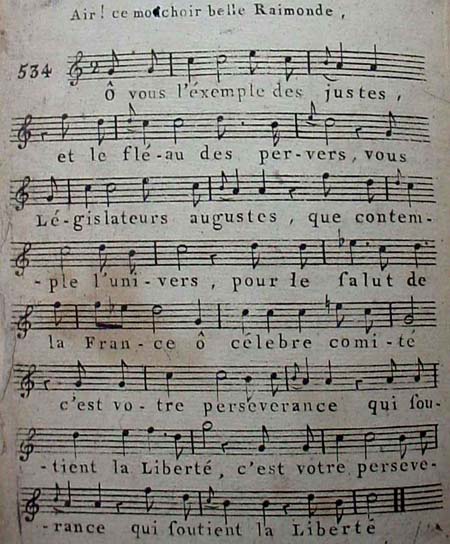 Air! ce mouchoir belle Raimonde,
534
Ô vous l'éxemple des justes,
et le flé-au des per-vers, vous
Lé-gislateurs augustes, que contem-
-ple l'uni-vers, pour le salut de
la Fran-ce ô célebre comi-té
c'est vo-tre perseverance qui sou-
-tient la Liberté, c'est votre perseve-
-rance qui soutient la Liberté